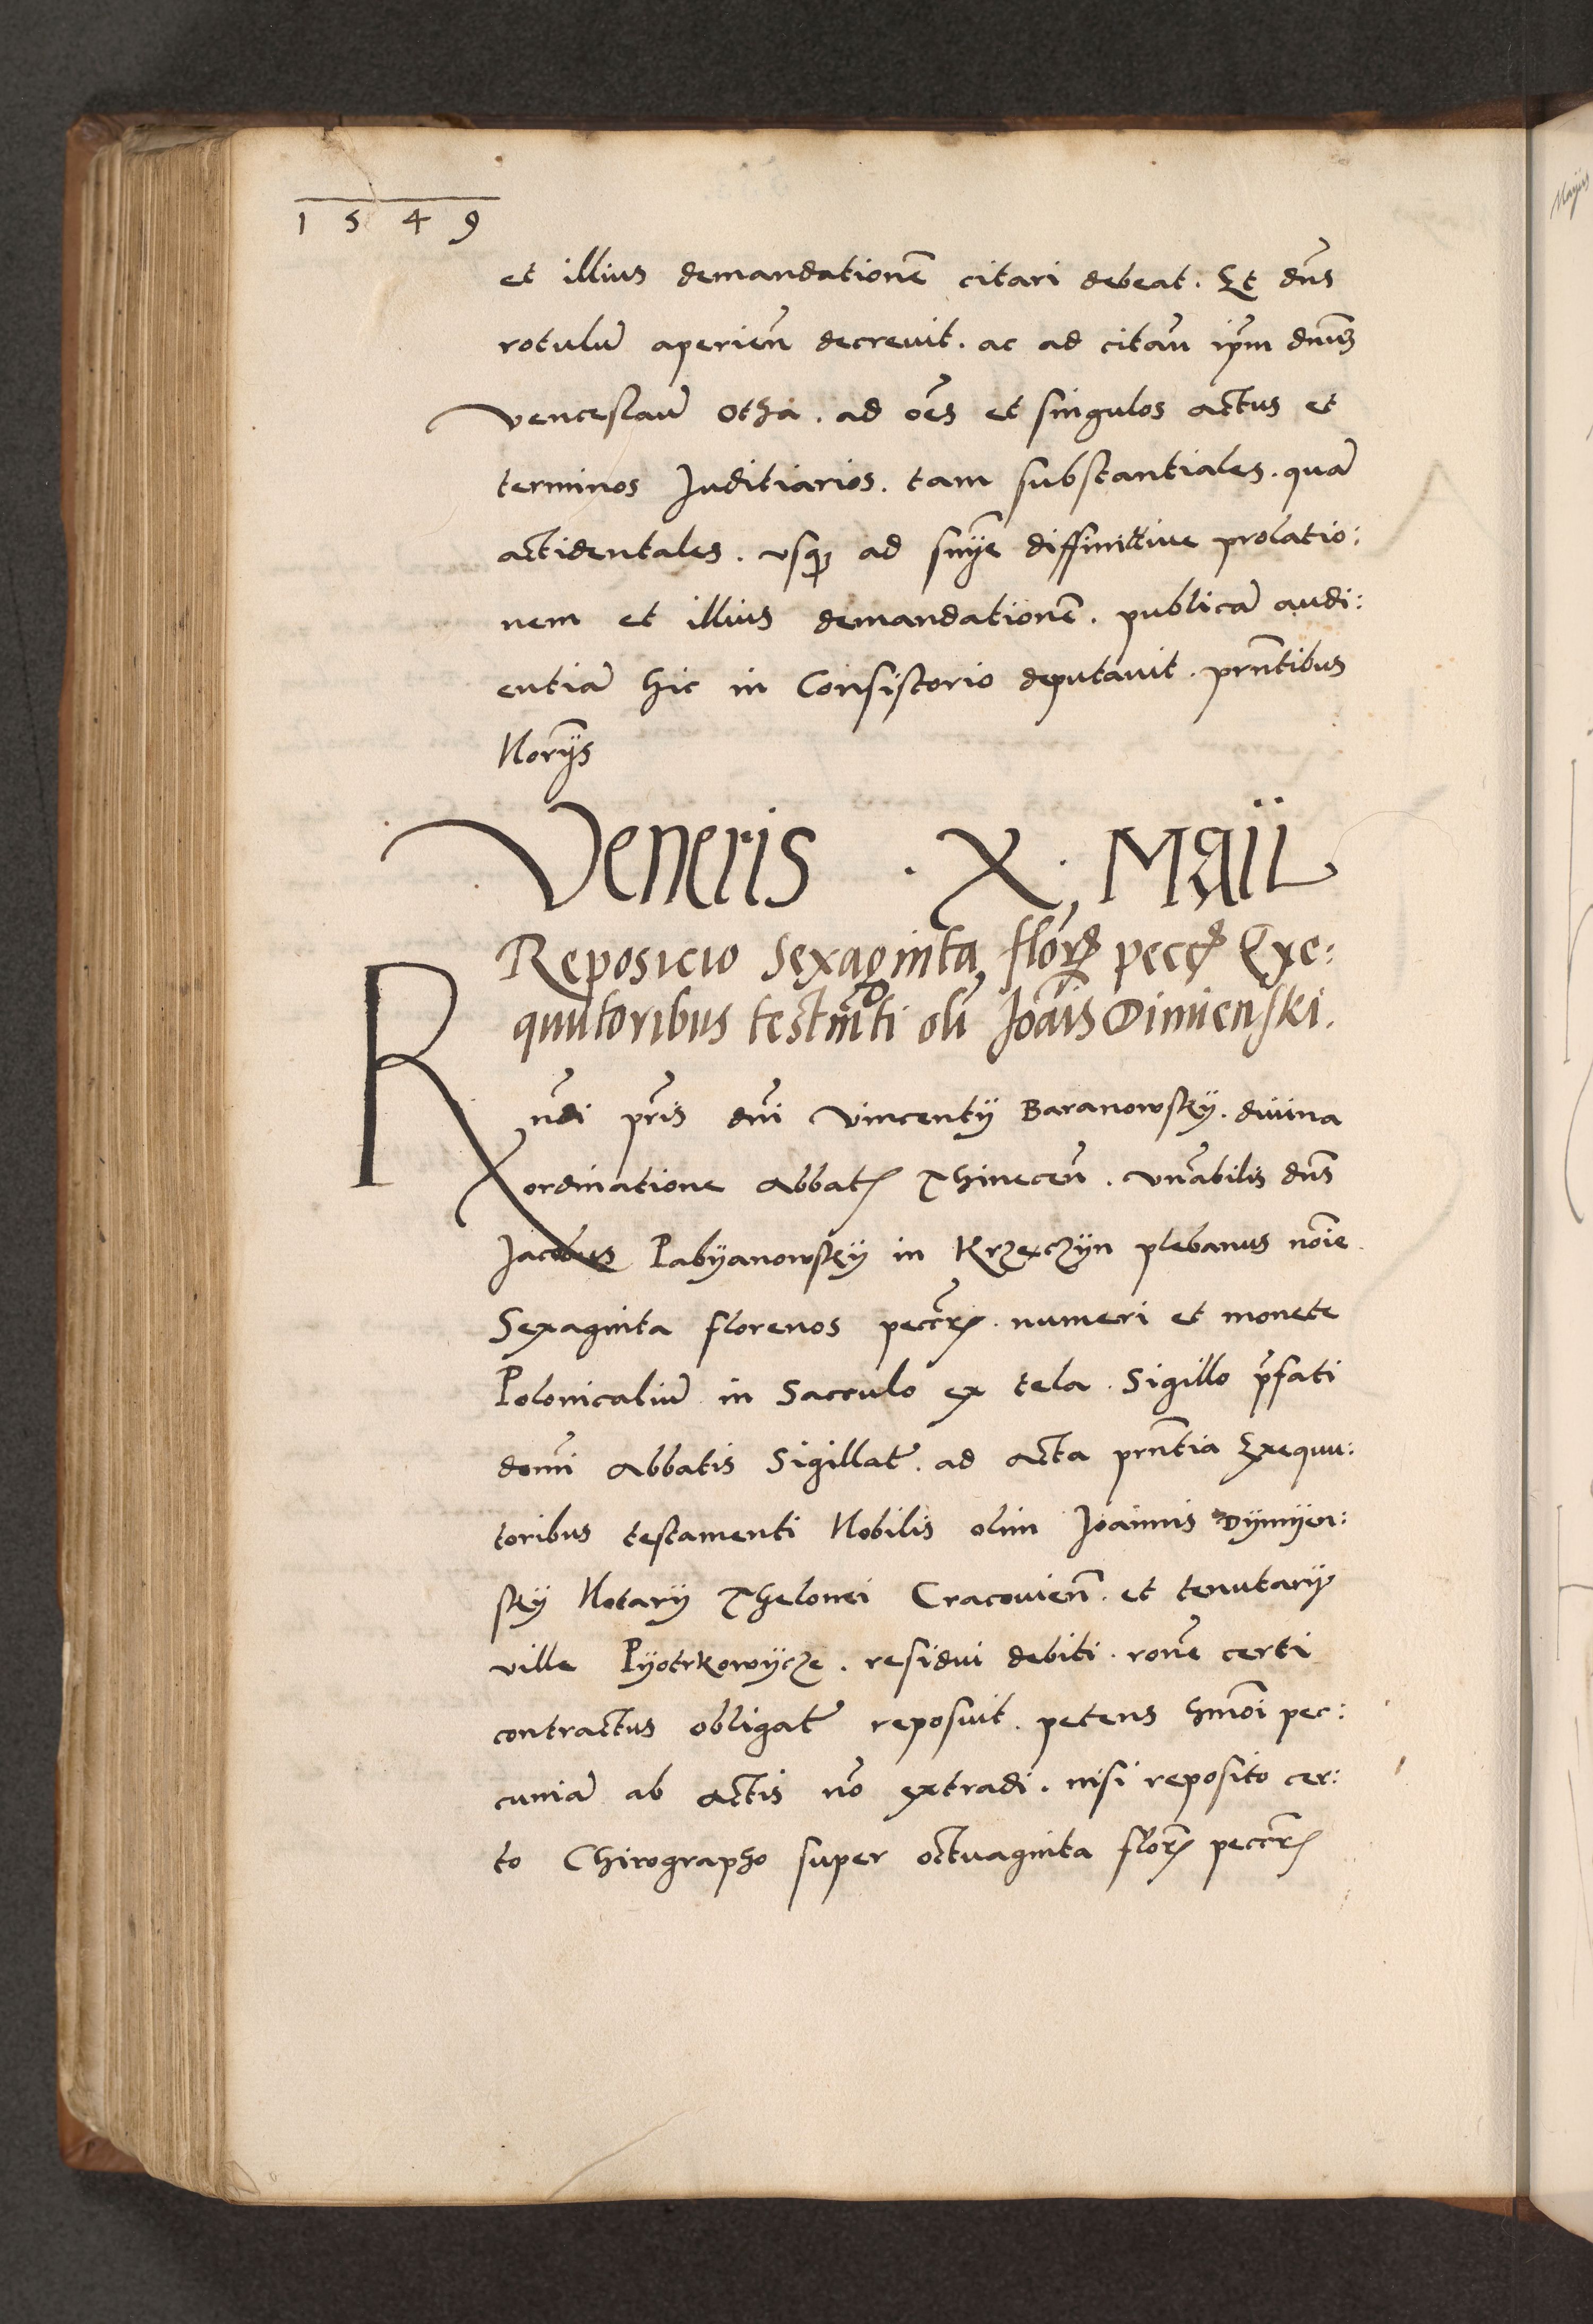 1549
et illius demandationē citari debeat. Et dn̄s
rotulū aperien̄ decrevit. ac ad citan̄ ip̄m dn̄um
Venceslaū Otha. ad oēs et singulos actus et
terminos Juditiarios. tam substantiales. quā
actidentales. usq̨ ad sn̄ie diffinitive prolatio:
nem et illius demandationē. publicā audi:
entiā hic in Consistorio deputavit. prn̄tibus
Norijs
Veneris . X. Maii
Reposicio Sexaginta florꝭ peccꝭ Exe:
quutoribus testm̄ti oli Joāis Dimienski.
Rn̄di pr̄is dn̄i Vincentij Baranowskÿ. divina
ordinatione Abbatꝭ Thinecen̄. vn̄abilis dn̄s
Jacobus Pabÿanowskÿ in Krzęczÿn plebanus noīe
Sexaginta florenos peccrꝭ. numeri et monete
Polonicaliū in Sacculo ex tela. Sigillo p̄fati
domi Abbatis Sigillat̄. ad acta prn̄tia Exequu:
toribus testamenti Nobilis olim Joannis Dÿmÿen:
skÿ Notarij Thelonei Cracovien̄. et tenutarij
ville Pÿotrkowÿcze. residui debiti. rōne certi
contractus obligat̄ reposuit. petens hm̄oi pec:
cuniā ab actis nō extradi. nisi reposito cer:
to Chirographo super octuaginta florꝭ peccrꝭ